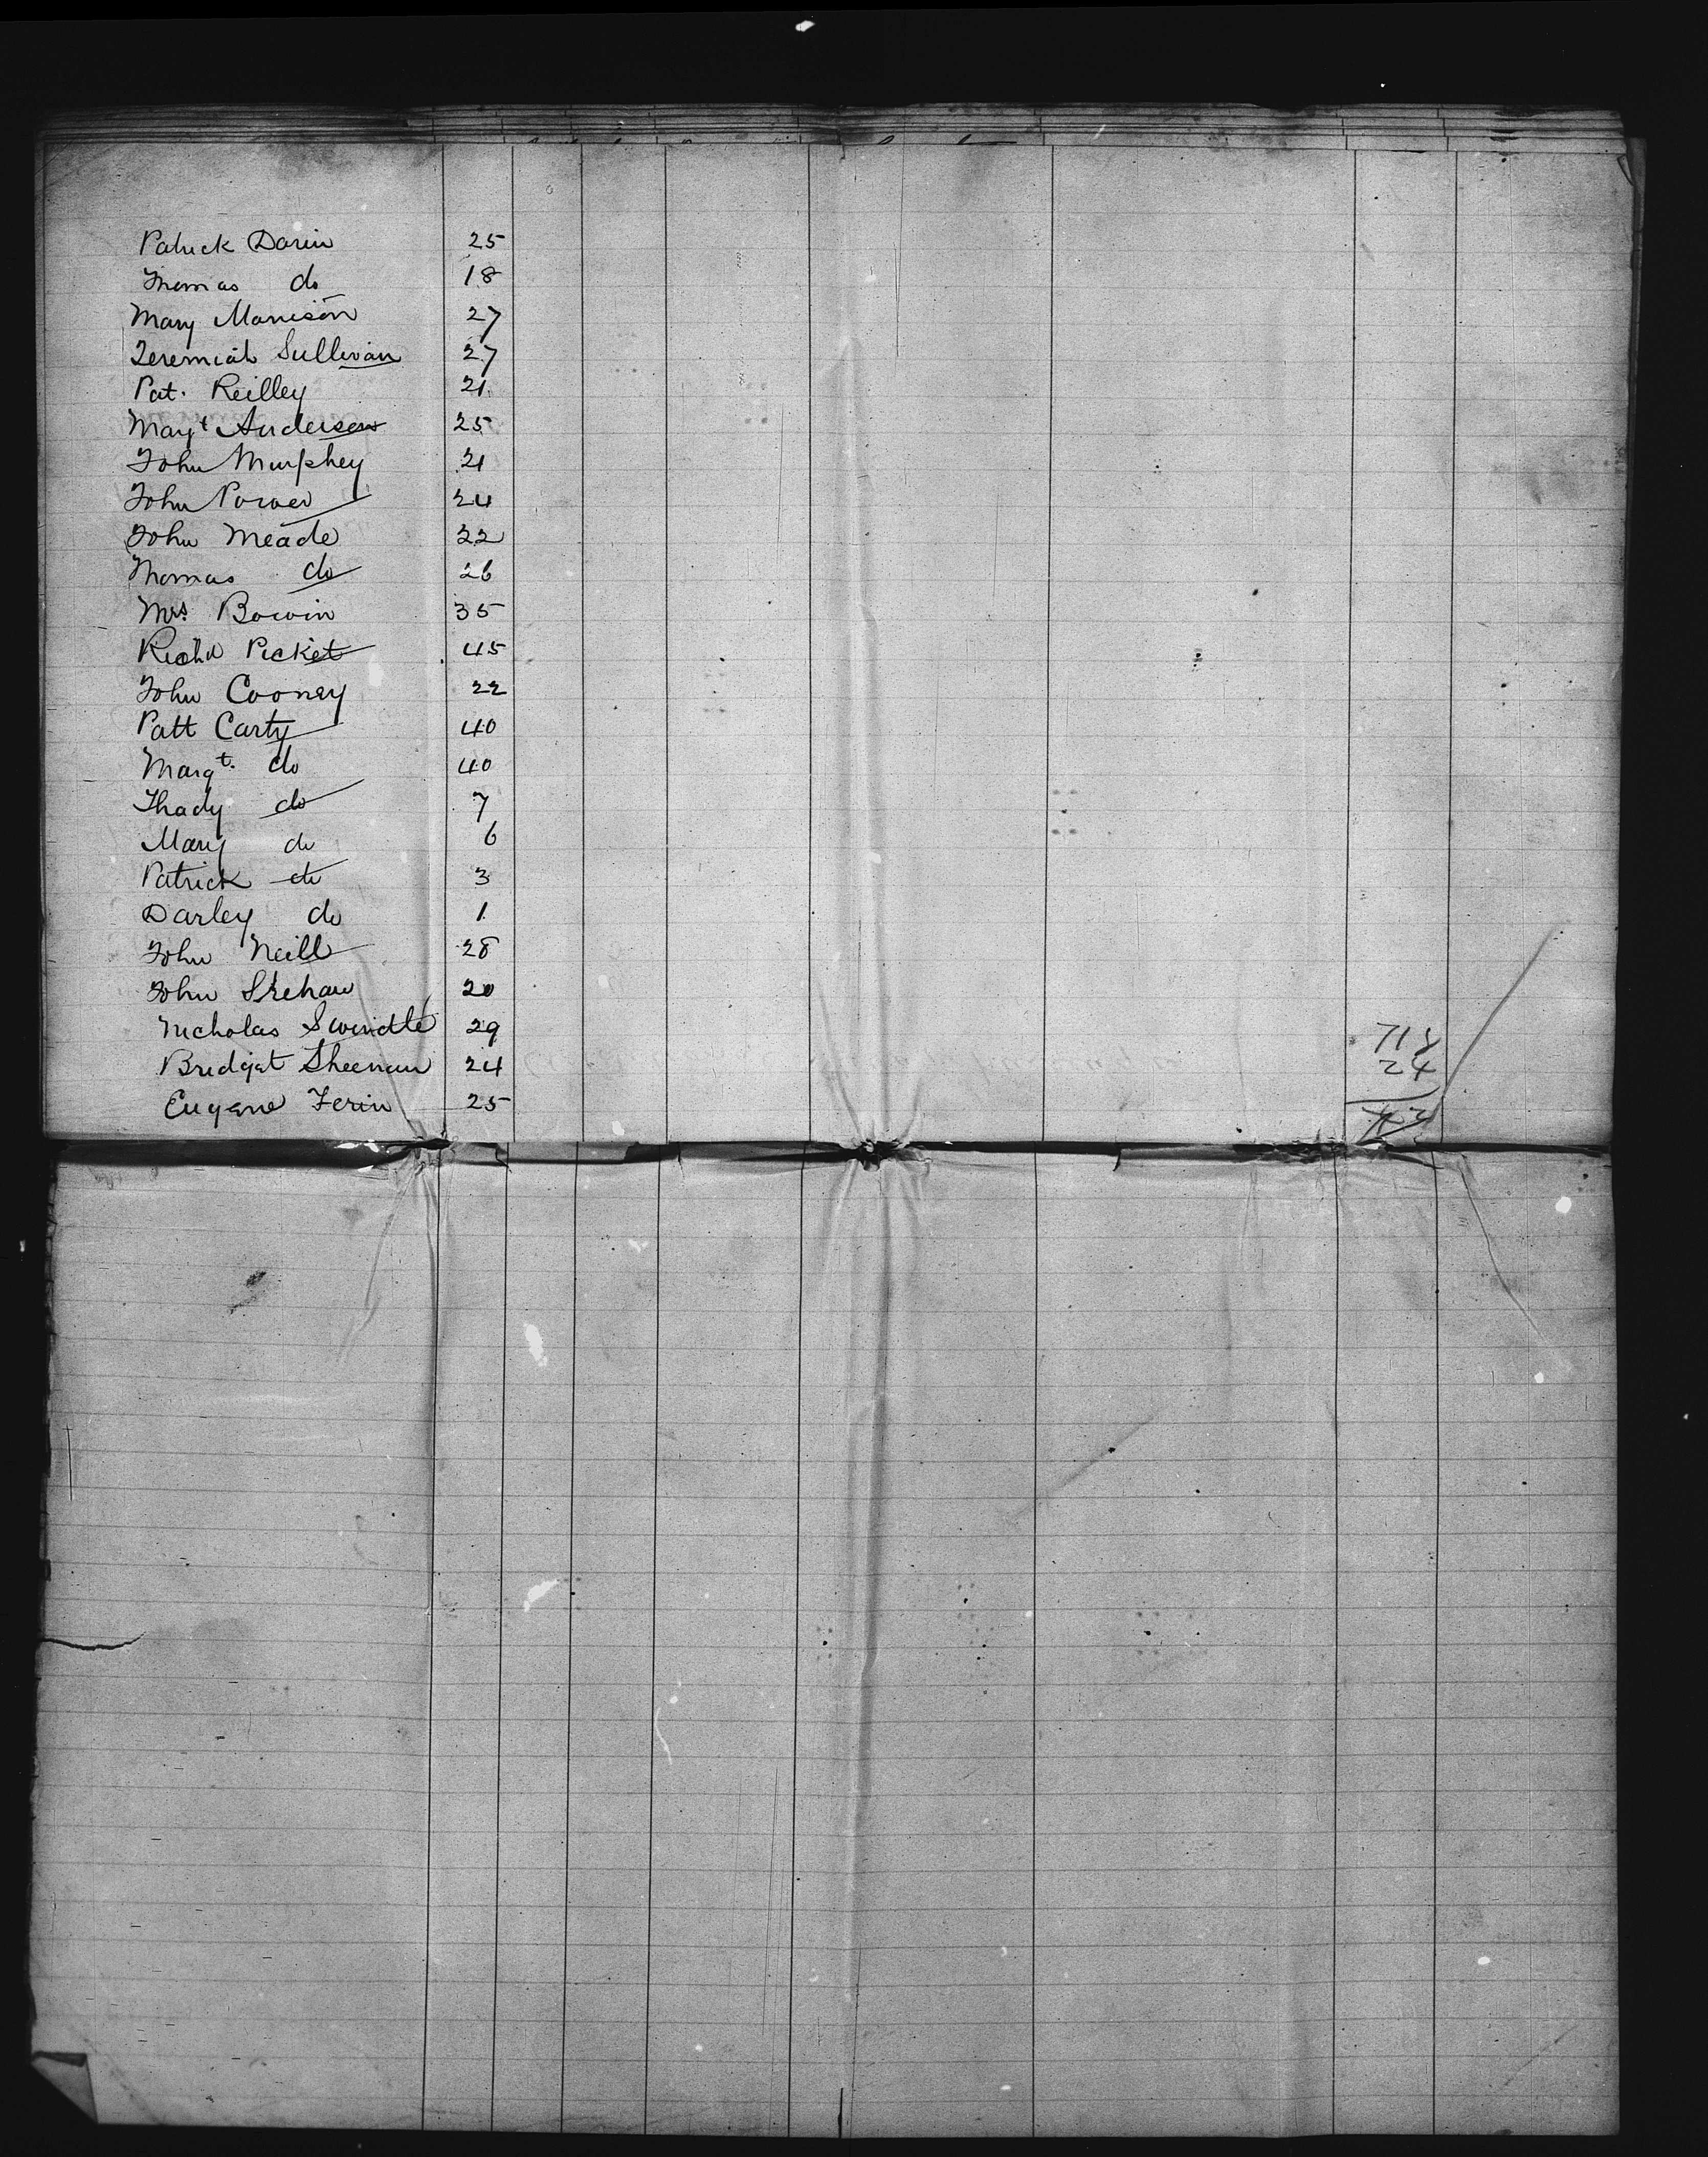 Patrick Darin 25
Thomas do 18
Mary Morrison 27
Jeremiah Sullivan 27
Pat. Reilley 21
Margt Anderson 25
John Murphey 21
John Power 24
John Meade 22
Thomas do 26
Mrs. Bowin 35
Richd Picket 45
John Cooney 22
Patt Carty 40
Margt. do 40
Thady do 7
Mary do 6
Patrick do 3
Darley do 1
John Neill 28
John Strehan 20
Nicholas Swindle 29
718
Bridget Sheenan 24
24
Eugene Ferin 25